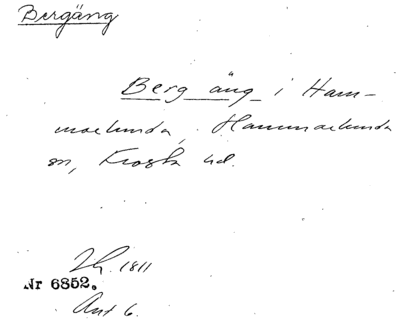 Bergäng
Berg äng i Ham-
marlunda, Hammarlunda
sn, Frosta hd.
Lh. 1811
Nr 6852.
Akt 6.